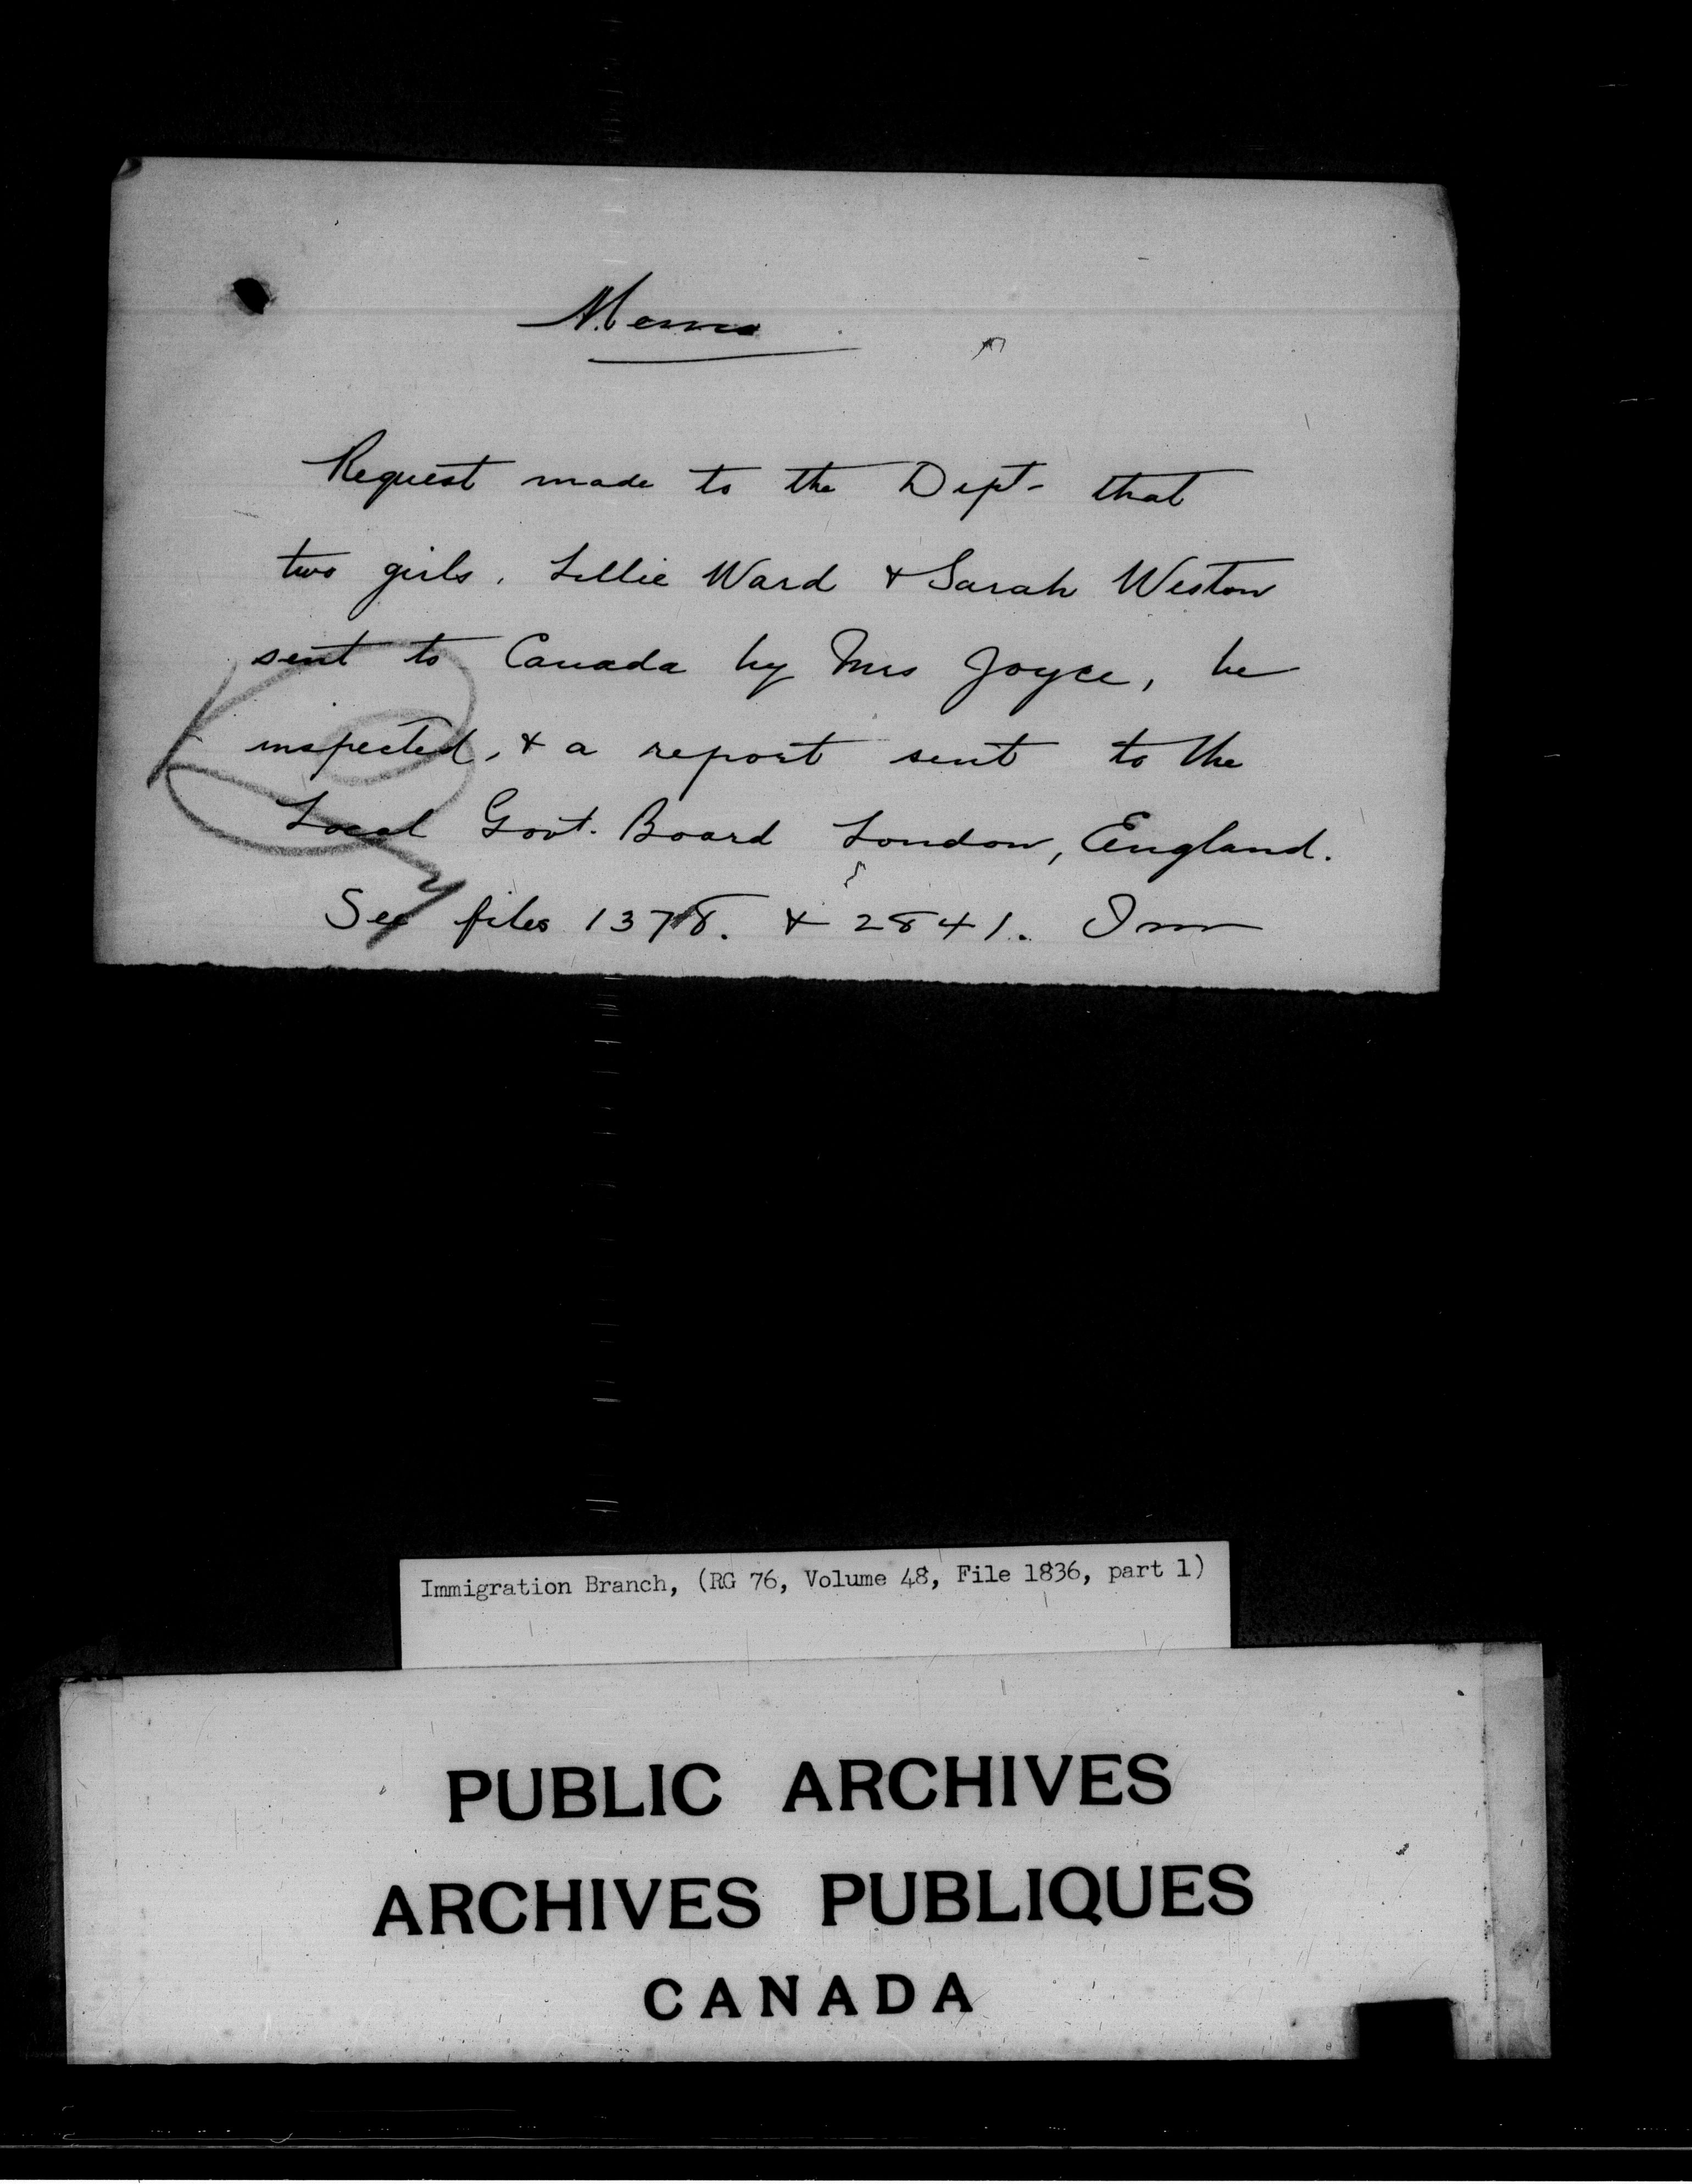 Memo
Request made to the Dept- that
two girls, Lillie Ward & Sarah Weston
sent to Canada by Mrs Joyce, be
inspected, & a report sent to the
Local Govt. Board London, England.
See files 1378. & 2841. Imm
Immigration Branch, (RG 76, Volume 48, File 1836, part 1)
PUBLIC ARCHIVES
ARCHIVES PUBLIQUES
CANADA